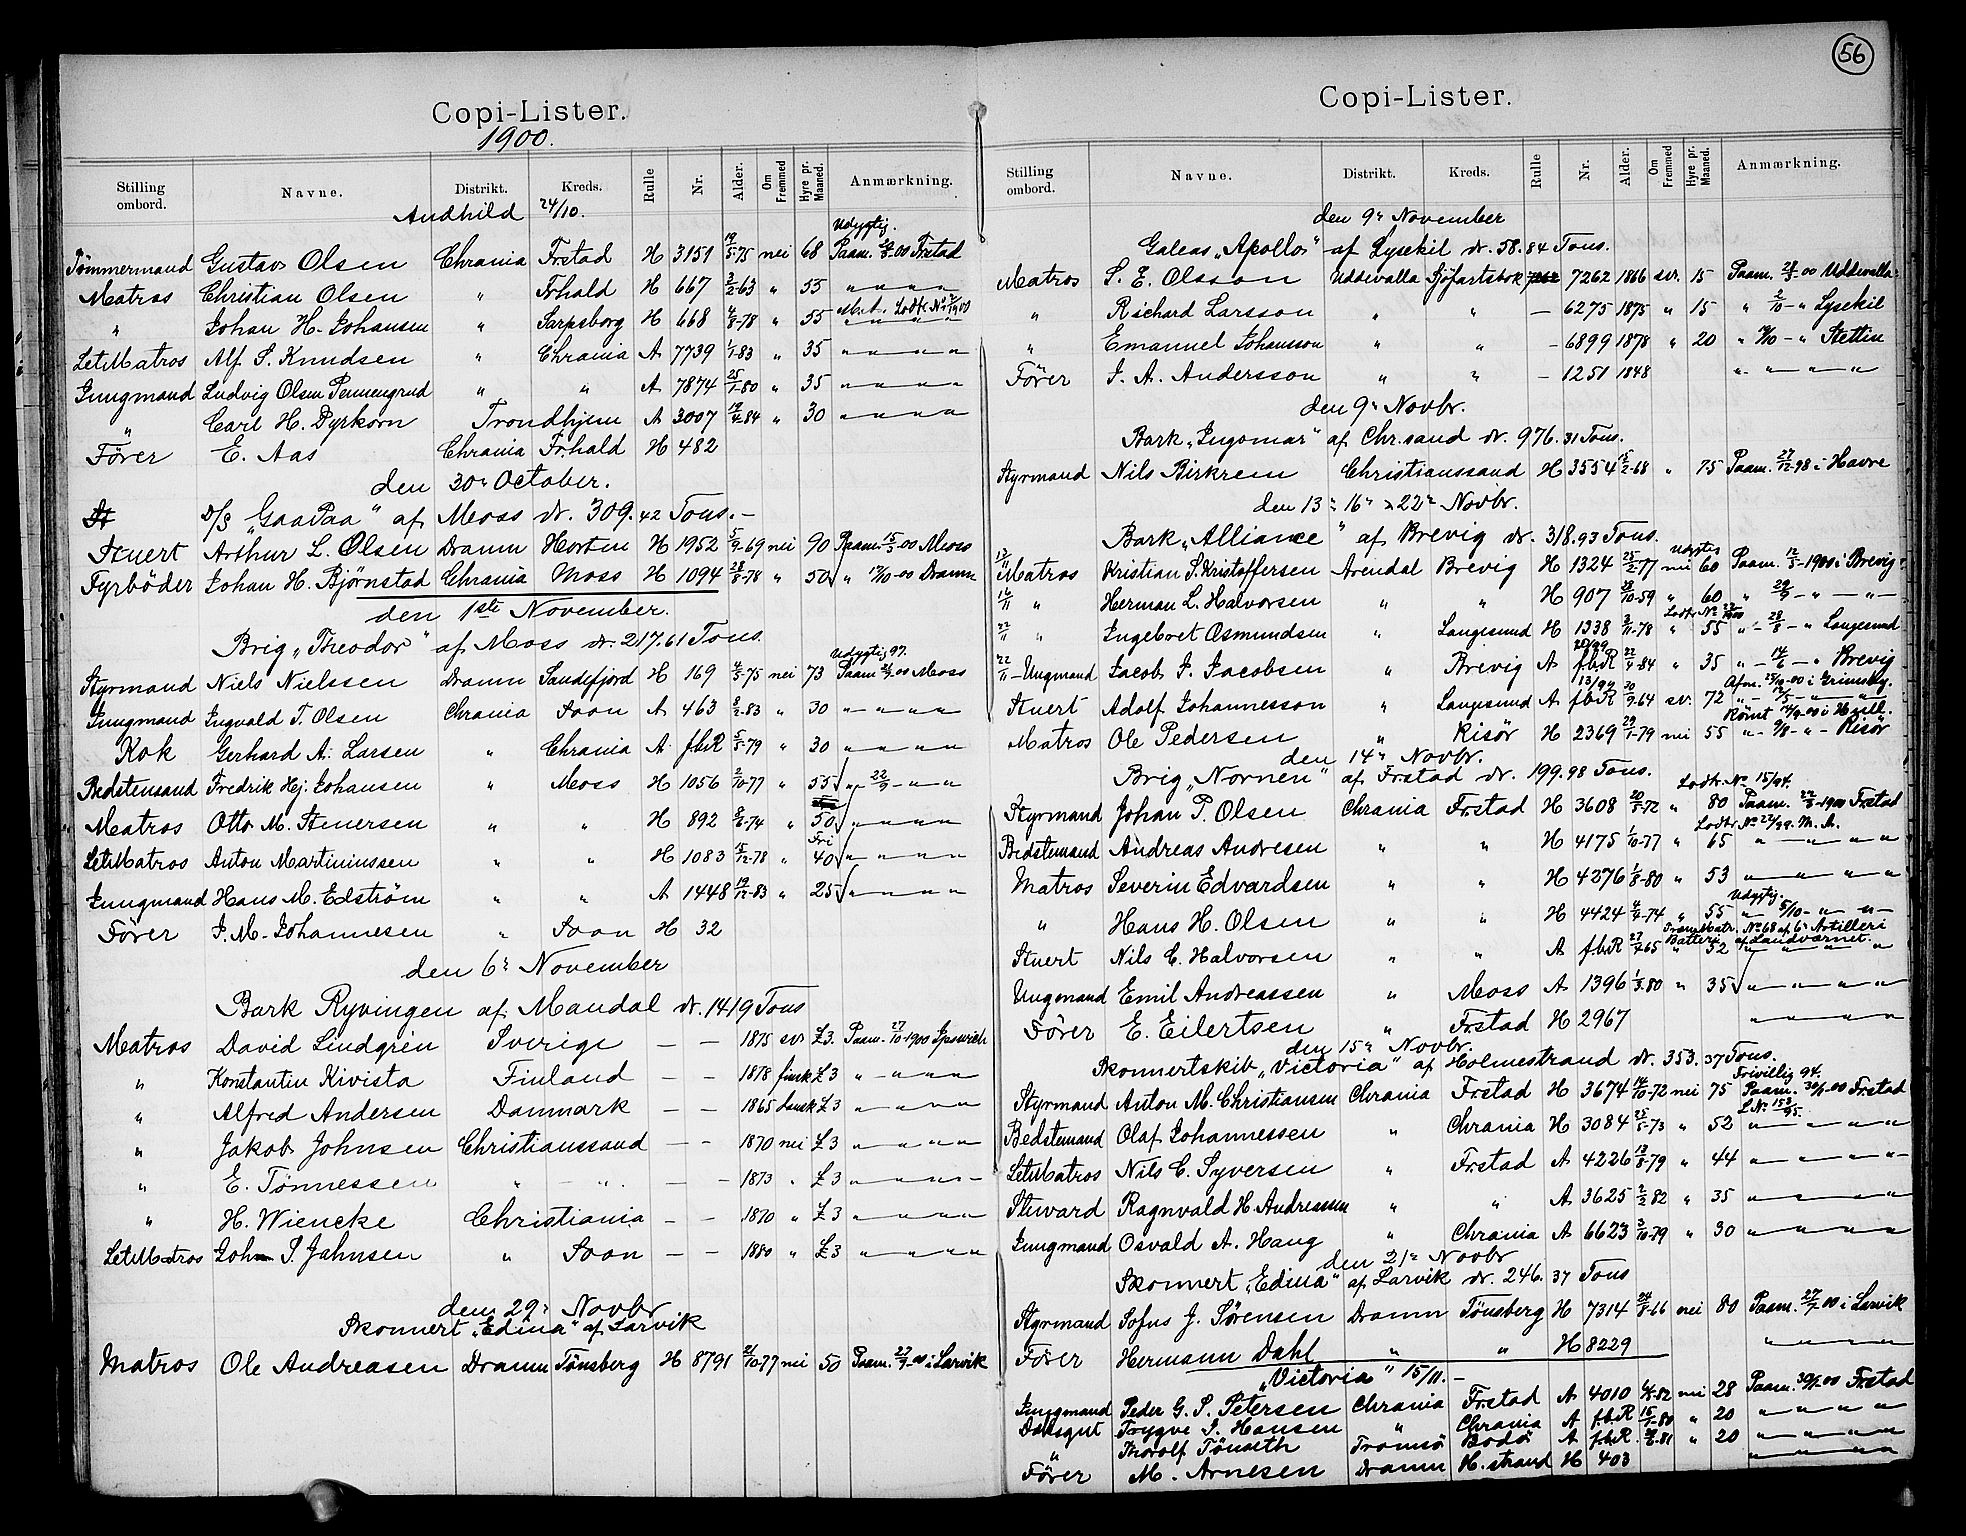 56
Copi-Lister.
1900.
Stilling ombord. Navne. Distrikt. Kreds. Rulle Nr. Alder. Om Fremmed Hyre pr. Maaned. Anmærkning.
Audhild 24/10.
Udygtig.
Tömmermand Gustav Olsen Chrania Frstad H 3151 19/5-75 nei 68 Paam. 00 Frstad
Matros Christian Olsen " Frhald H 667 2/2-63 " 55 " " " "
" Johan H. Johansen " Sarpsborg H 668 8-78 " 55 " " " "
LetMatros Alf S. Knudsen " Chrania A 7739 1/1-83 " 35 " " " "
Jungmand Ludvig Olsen " " A 7874 25/1-80 " 35 " " " "
" Carl H. Dyrkorn Trondhjem A 3007 19/4-84 " 30 " " " "
Förer E. Aas Chrania Frhald H 482
den 30te October.
D/S "GaaPaa" af Moss dr. 309.42 Tons.-
Stuert Arthur L. Olsen Dramn Horten H 1952 5/9-69 nei 90 Paam. 00 Moss
Fyrböder Johan H. Bjørnstad Chrania Moss H 1094 28/8-78 " 50 " 17/10-00 Dramn
den 1ste November.
Brig "Theodor" af Moss dr. 217.61 Tons.
Udygtig 97.
Styrmand Niels Nielssen Dramn Sandefjord H 169 5-75 nei 73 Paam 00 Moss
Jungmand Ingvald T. Olsen Chrania Soon A 463 8/2-83 " 30 " " " "
Kok Gerhard A. Larsen " Chrania A fbR 5/5-79 " 30 " " " "
Bedstemand Fredrik Hj. Johansen " Moss H 1056 2/10-77 " 55 " 22/9 - " "
Matros Otto M. Stenersen " " H 892 8/6-74 " 50 " " " "
Fri
LetMatros Anton Martiniussen " " H 1083 15/12-78 " 40 " " " "
Jungmand Hans M. Edström " " A 1448 19/12-83 " 25 " " " "
Förer J. M. Johannesen " Soon H 32
den 6te November
Bark Ryvingen af Mandal dr. 1419 Tons
Matros David Lindgrén Sverige - - 1875 sv £3. Paam. 27/10-1900 Ipswich
" Konstantin Kivista Finland - - 1878 finsk £3 " " " "
" Alfred Andersen Danmark - - 1865 dansk £3 " " " "
" Jakob Johnsen Christianssand - - 1870 nei £3 " " " "
" E. Tönnessen " " - - 1873 " £3 " " " "
" H. Wiencke Christiania - - 1870 " £3 " " " "
LetMatros John P. Jahnsen " Soon - - 1880 " £3 " " " "
den 29de Novbr
Skonnert "Edina" af Larvik
Matros Ole Andreasen Dramn Tönsberg H 8791 21/10-77 nei 50 Paam. 27/9-00 i Larvik
Copi-Lister.
Stilling ombord. Navne. Distrikt. Kreds. Rulle Nr. Alder. Om Fremmed Hyre pr. Maaned. Anmærkning.
den 9de November
Galeas "Apollo" af Lysekil dr. 58.84 Tons.
Matros S. E. Olsson Uddevalla Sjöfartsbok 7262 1866 sv. 15 Paam. 00 Uddevalla
" Richard Larsson " " - 6275 1875 " 15 " 2/10 - " Lysekil
" Emanuel Johansson " " - 6899 1878 " 20 " - " Stettin
Förer J. A. Andersson " " - 1251 1848 " " " "
den 9de Novbr.
Bark "Ingomar" af Chr.sand dr. 976.31 Tons.
Styrmand Nils Birkrem Christianssand H 3554 15/2-68 " 75 Paam. 27/12-98 i Havre
den 13de 16de & 22de Novbr.
Bark "Alliance" af Brevig dr. 318.93 Tons.
Udygtig
13/11 Matros Kristian S. Kristoffersen Arendal Brevig H 1324 25/2-77 nei 60 Paam. 12/5-1900 i Brevig
16/11 " Herman L. Halvorsen " " H 907 10-59 " 60 " 29/9 - " - " -
22/11 " Ingebret Osmundsen " Langesund H 1338 2/11-78 " 55 " 28/8 - " Langesund
22/11 - Ungmand Jacob J. Jacobsen " Brevig A fbR 22/4-84 " 35 " - 14/6 - " Brevig
Stuert Adolf Johannesson " Langesund A fbR 30/9-64 sv. 72 " - 12/5 - " "
Matros Ole Pedersen " Risör H 2369 29/1-79 nei 55 " - 9/8 - " - Risör
den 14de Novbr.
Brig "Nornen" af Frstad dr. 199.98 Tons.
Lodtr. No 15/94.
Styrmand Johan P. Olsen Chrania Frstad H 3608 20/5-72 " 80 Paam. -1900 Frstad
Lodtr No 22/99. M. A.
Bedstemand Andreas Andresen " " H 4175 1/10-77 " 65 " " " "
Matros Severin Edvardsen " " H 4276 1/8-80 " 53 " " " "
Udygtig.
" Hans H. Olsen " " H 4424 4/9-74 " 55 " 5/10 - " " -
No 68 af 6te Artilleri
Batteri af Landværnet.
Stuert Nils C. Halvorsen " " A f.b.R 27/4-65 " 52 " " "
Ungmand Emil Andreassen " Moss A 1396 80 " 35 " " " "
Förer E. Eilertsen " Frstad H 2967 " " " "
den 15de Novbr.
Skonnertskib "Victoria" af Holmestrand dr. 353.37 Tons.
Frivillig 94.
Styrmand Anton M. Christiansen Chrania Frstad H 3674 10-72 nei 75 Paam. 30/ 00 Frstad
Bedstemand Olaf Johannessen " Chrania H 3084 25/5-73 " 52 " " " "
LetMatros Nils C. Syversen " Frstad A 4226 13/8-79 " 44 " " " "
Stuvard Ragnvald H. Andreassen " " A 3625 2/2 82 " 35 " " " "
Jungmand Osvald A. Haug " Chrania A 6623 3/10-79 " 30 " " " "
den 21de Novbr
Skonnert "Edina" af Larvik dr. 246.37 Tons
Styrmand Sofus J. Sörensen Dramn Tönsberg H 7314 24/8-66 nei 80 Paam. 27/9-00 i Larvik
Förer Hermann Dahl " " H 8229 " " " "
"Victoria" 15/11.-
Jungmand Peder G. S. Petersen Chrania Frstad A 4010 82 nei 28 Paam. 30/ 00 Frstad
Dæksgut Trygve S. Hansen " Chrania A f.b.R 15/1-80 " 20 " " " "
" Thorolf Tömeth Tromsö Bodö A f.b.R. 81 " 20 " " " "
Förer M. Arnesen Dramn H.strand H 403 " " " "